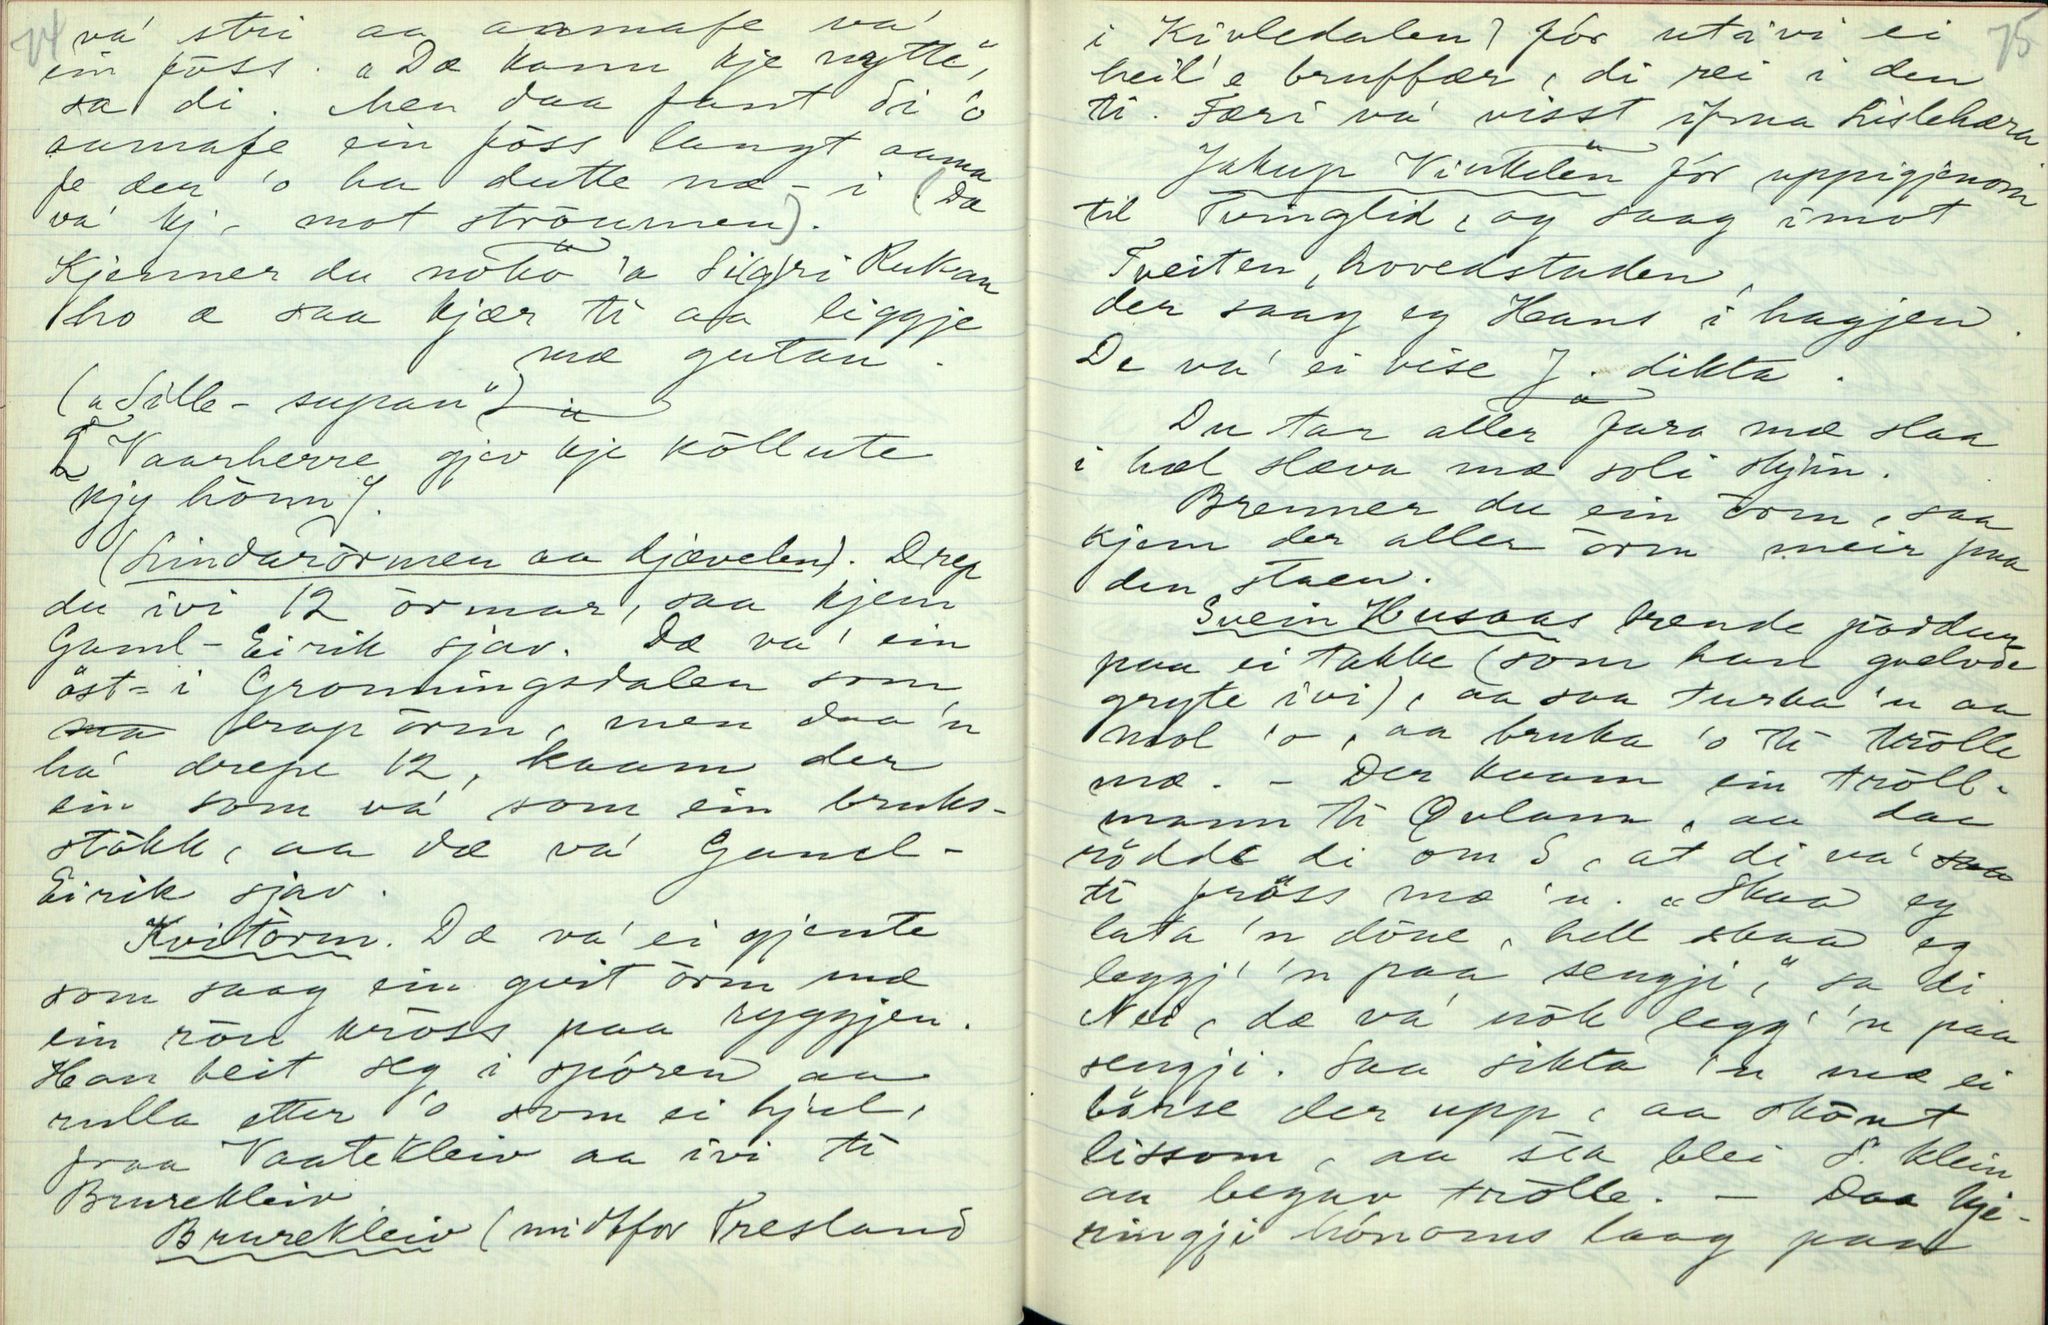 74
va' stri aa aamafe va'
ein föss. „Dæ kann kje nytte",
sa di. Men daa fant di 'o
aamafe ein föss langt aama
fe den 'o ha dutte næ-i (Dæ
va' kj, mot ströumen).
Kjenner du nökö 'a Si(g)ri Rukan
ho æ saa kjær ti aa liggje
mæ gutan.
(„Sille-supan")
[Vaarherre gjev kje köllute
kjy hönn].
(Lindarörmen aa kjævelen). Drep
du ivi 12 örmar, saa kjem
Gaml-Eirik sjav. Dæ va' ein
öst-i Gronningsdalen som
drap örm, men daa 'n
ha' drepe 12, kaam der
ein som va' som ein bruks-
stökk, aa dæ va' Gamel-
Eirik sjav.
Kvitörm. Dæ va' ei gjente
som saag ein qvit örm mæ
ein röu kröss paa ryggjen.
Han beit seg i spóren aa
rulla etter 'o som ei hjul,
fraa Vaatekleiv aa ivi ti
Brurekleiv.
Brurekleiv (midtfor Tresland
75
i Kivledalen) fór utivi ei
heil'e bruffær, di rei i den
ti. Færi va' visst ifraa Lislehæra
Jakup Vinkelen fór uppigjenom
til Tvinglid, og saag imot
Tveiten, hovedstaden,
der saag eg Hans i hagjen.
De va' ei vise J. dikta.
Du tar aller fara mæ slaa
i hæl slæva mæ soli skjin.
Brenner du ein örm, saa
kjem der aller örm meir paa
den staen.
Svein Husaas brende poddun
paa ei takke (som han qvelvde
gryte ivi), aa saa turka 'n aa
mol 'o, aa bruka 'o ti trölle
mæ. - Der kaam ein tröll-
mann ti Qvlann, aa daa
rödde di om S, at di va'
ti pröss mæ 'n. „Skaa eg
lata 'n döue, hell skaa eg
leggj' 'n paa sengji," sa di
Nei, dæ va' nök legg' 'n paa
sengji. Saa sikta 'n mæ ei
börse der upp, aa skönt
lissom, aa sea blei S. klein
aa begav trölle. - Daa kje-
ringji hónoms laag paa